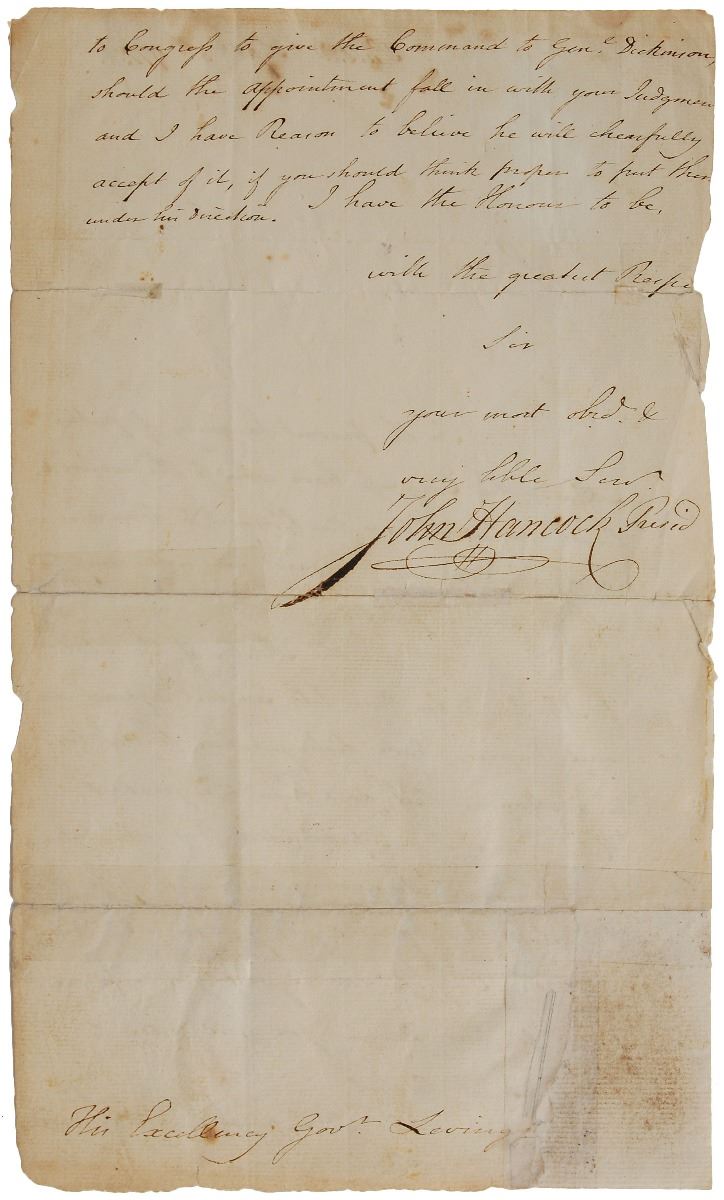 to Congress to give the Command to Genl. Dickinson,
should the appointment fall in with your Judgmen
and I have Reason to believe he will chearfully
accept of it, if you should think proper to put them
under his Direction. I have the Honour to be,
with the greatest Respe
Sir
your most obed. &
very hble Serv.
John Hancock Presid
His Excellency Govr. Livings